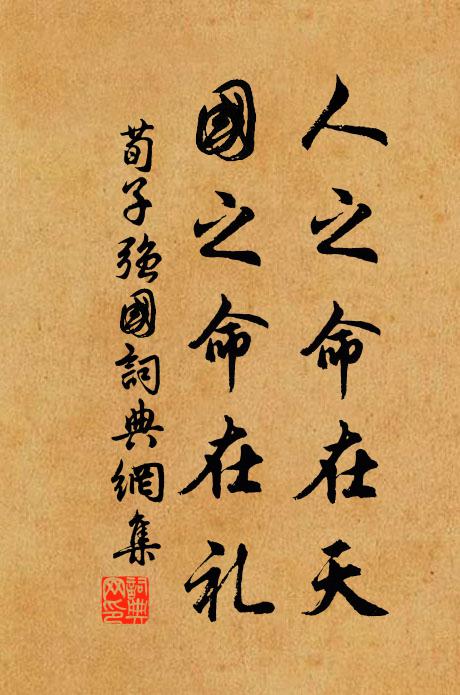 人之命在天
國之命在礼
荀子強國詞典網集
詞典
网印